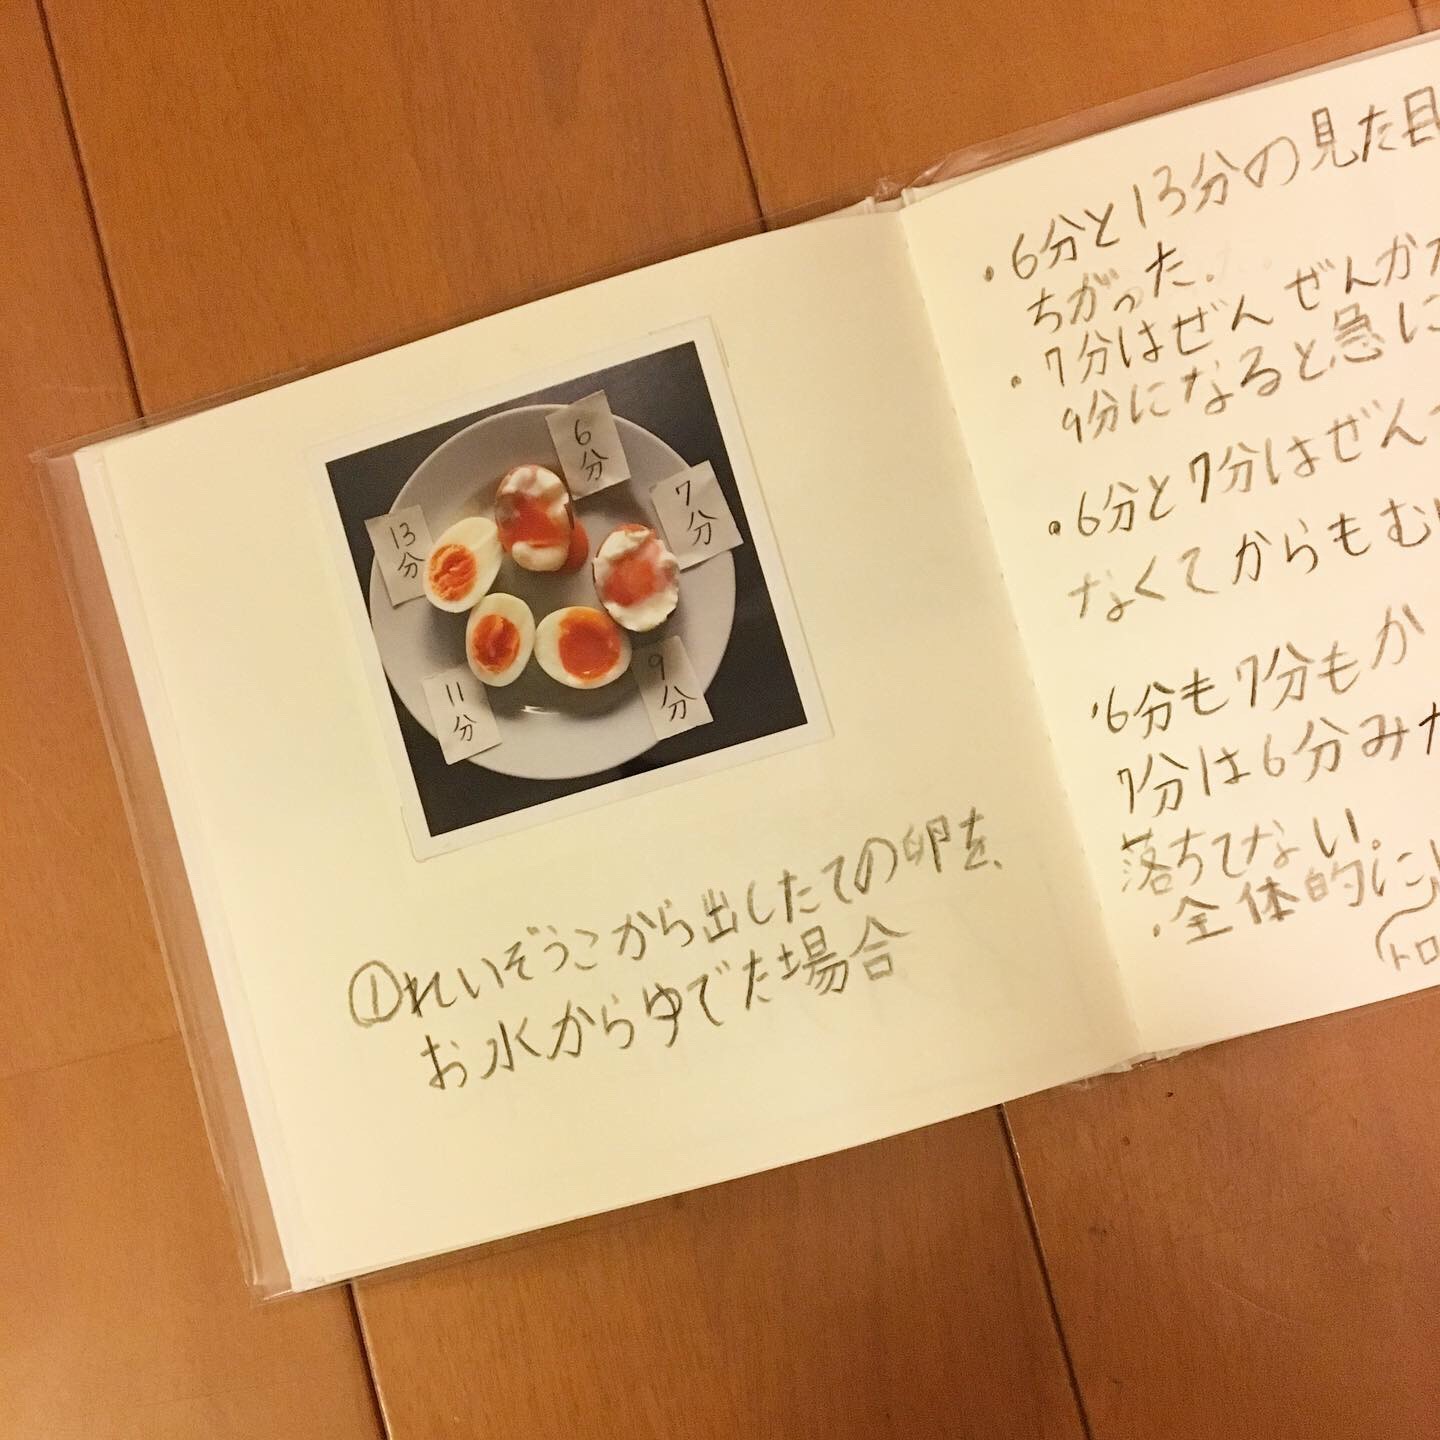 6分
7分
13分
11分
9分
①れいぞうこから出したての卵を、
お水からゆでた場合
・6分と13分の見た目
ちがった.
・7分はぜんぜんか
9分になると急に
・6分と7分はぜん
なくてからもむ
・6分も7分もか
7分は6分みた
落ちてない。
・全体的に
トロ